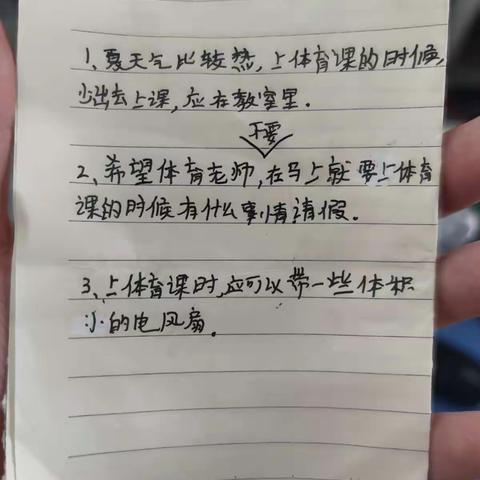 1、夏天气比较热,上体育课的时候,
少出去上课,应在教室里.
不要
2、希望体育老师,在马上就要上体育
课的时候有什么事情请假.
3、上体育课时,应可以带一些体积
小的电风扇.